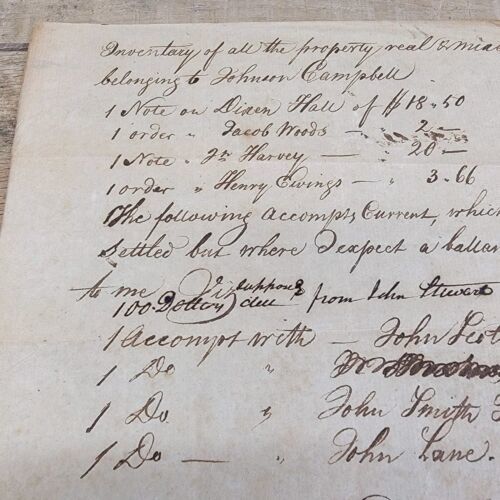 Inventory of all the property real & mixed
belonging to Johnson Campbell
1 Note on Dixen Hall of $18.50
1 order " Jacob Woods — " 2 —
1 Note " Jn Harvey — " 20 —
1 order " Henry Ewings — " 3.66
The following accompts Current, which
settled but where I expect a ballan
to me Viz
100 Dollars suppose due from John Stewart
1 Accompt with — John Scot
1 Do "
1 Do " John Smith
1 Do — " John Lane.